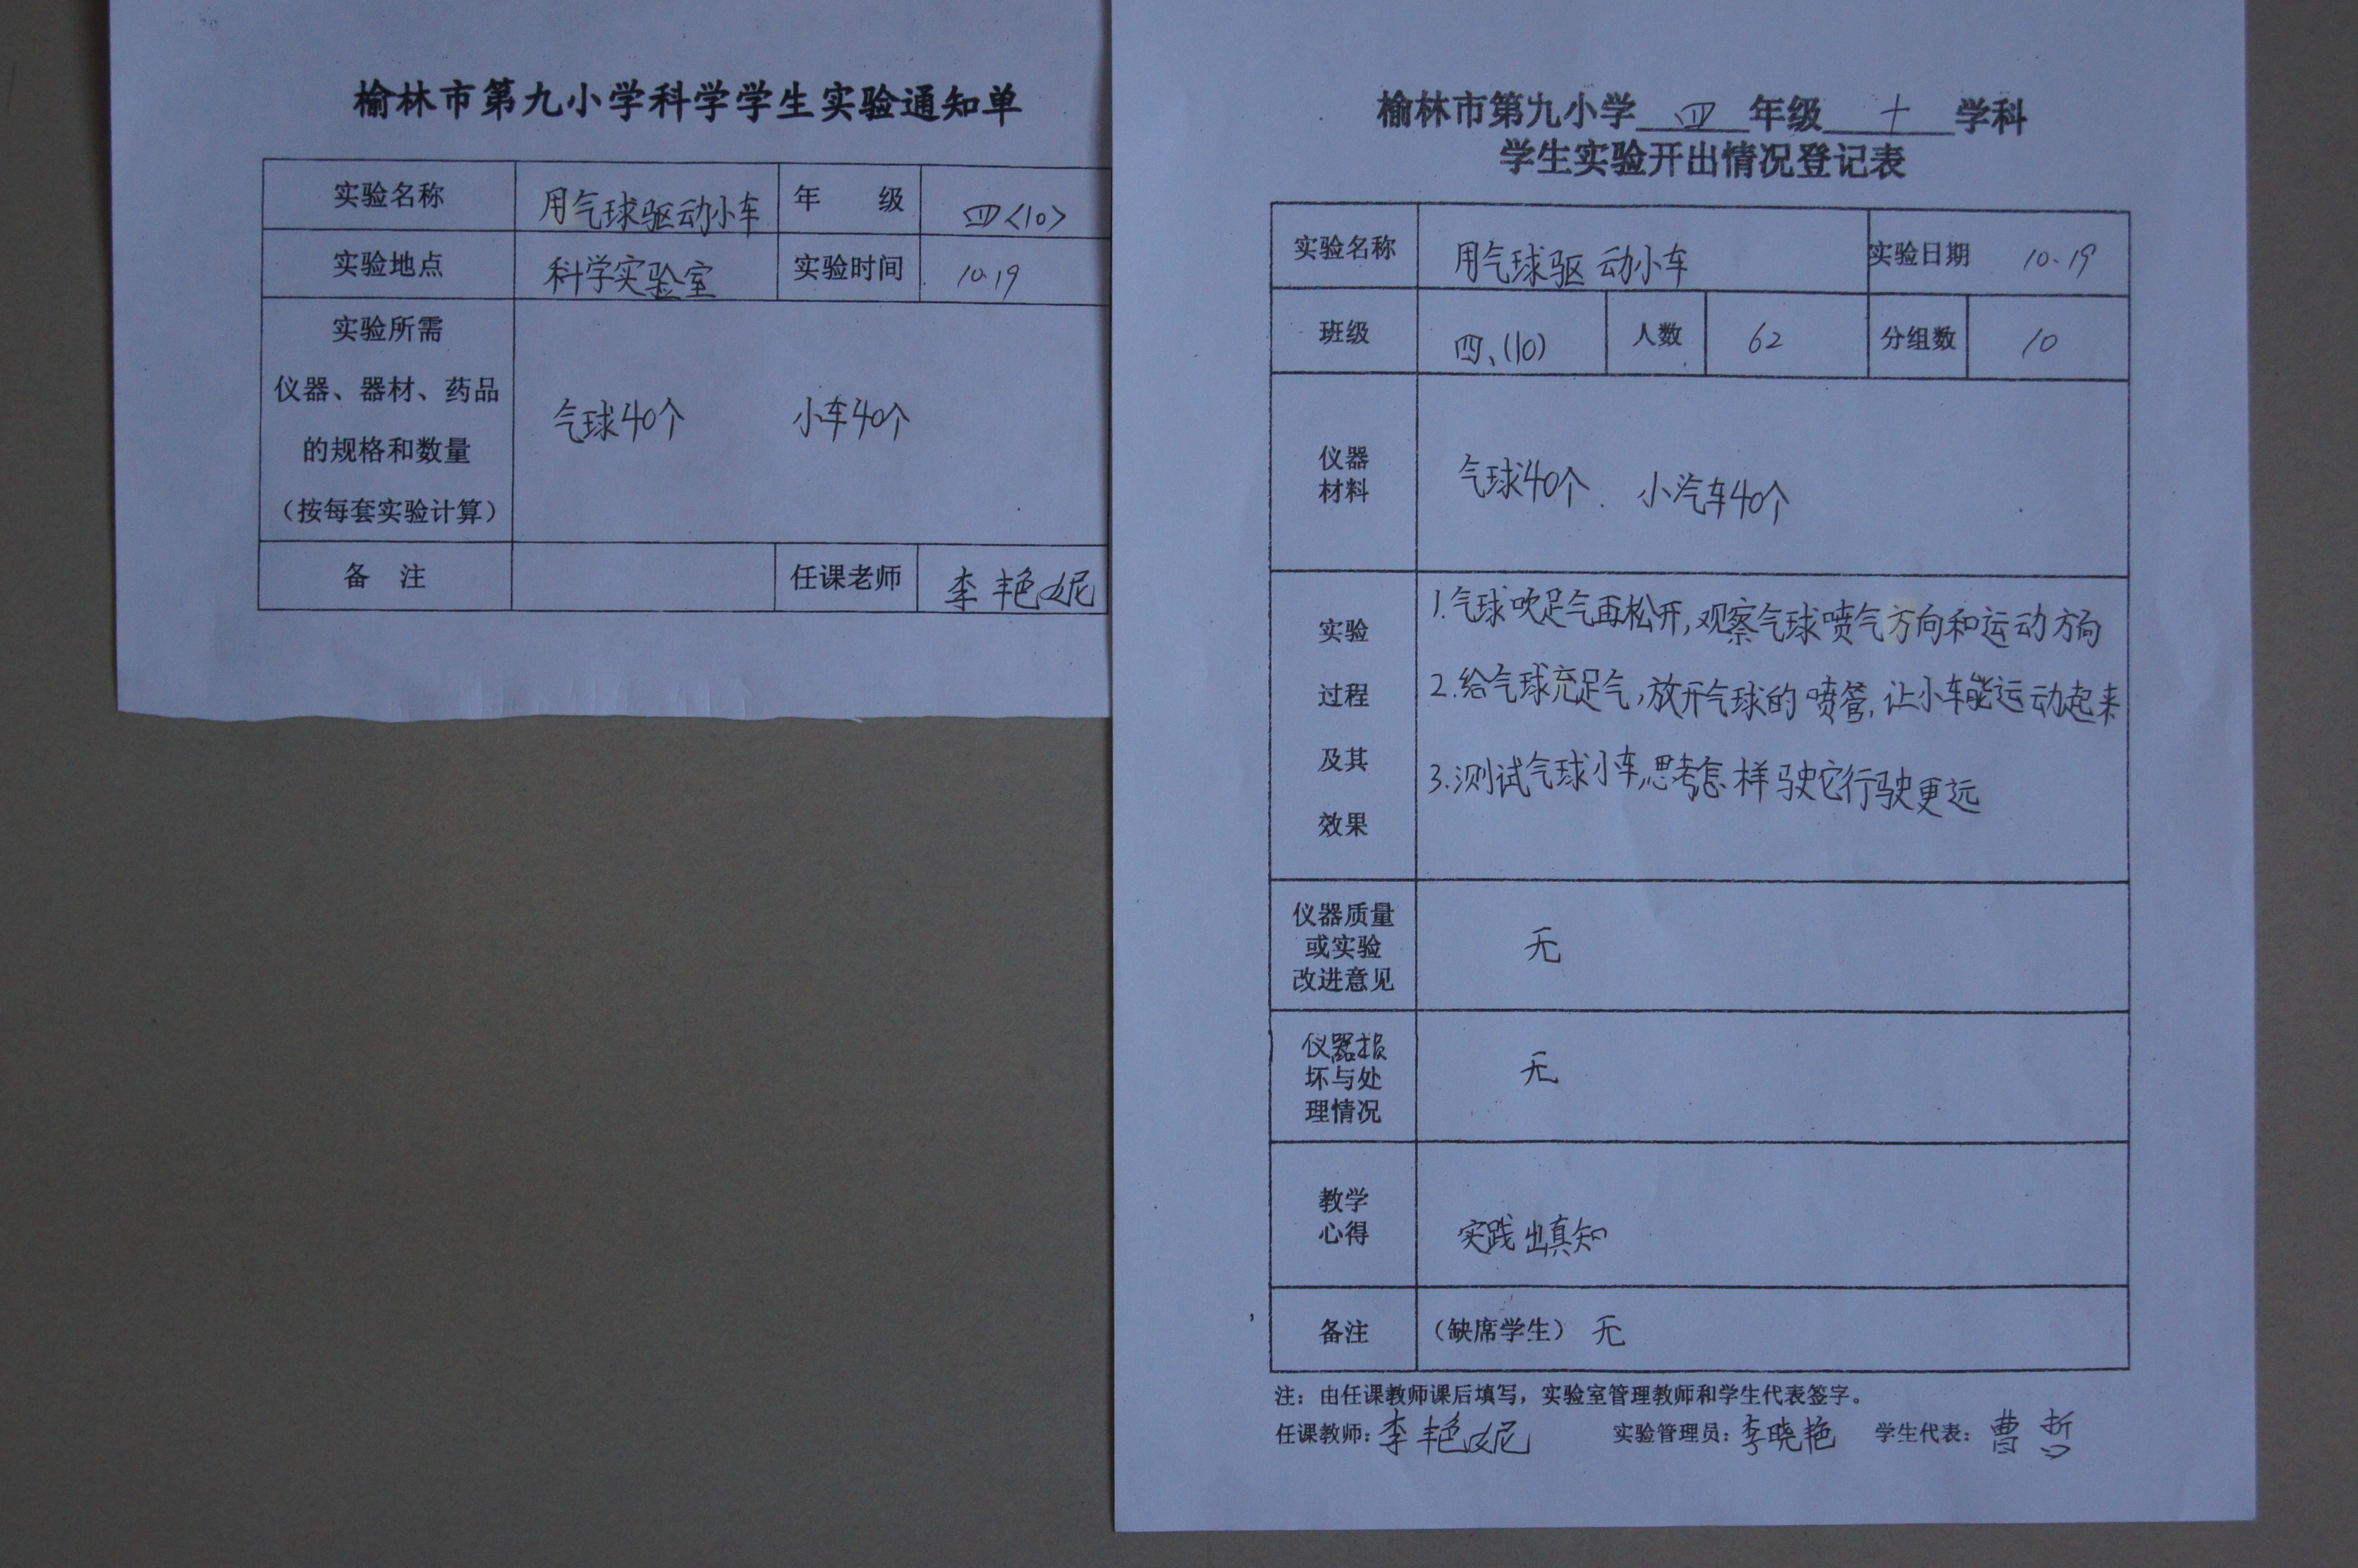 榆林市第九小学科学学生实验通知单
实验名称 用气球驱动小车 年 级 四<10>
实验地点 科学实验室 实验时间 10.19
实验所需
仪器、器材、药品
的规格和数量
（按每套实验计算）
气球40个 小车40个
备 注 任课老师 李艳妮
榆林市第九小学 四 年级 十 学科
学生实验开出情况登记表
实验名称 用气球驱动小车 实验日期 10.19
班级 四、(10) 人数 62 分组数 10
仪器
材料
气球40个. 小汽车40个
实验
过程
及其
效果
1.气球吹足气再松开,观察气球喷气方向和运动方向
2.给气球充足气,放开气球的喷管,让小车能运动起来
3.测试气球小车,思考怎样驶它行驶更远
仪器质量
或实验
改进意见
无
仪器损
坏与处
理情况
无
教学
心得
实践出真知
备注 （缺席学生） 无
注：由任课教师课后填写，实验室管理教师和学生代表签字。
任课教师：李艳妮 实验管理员：李晓艳 学生代表：曹哲